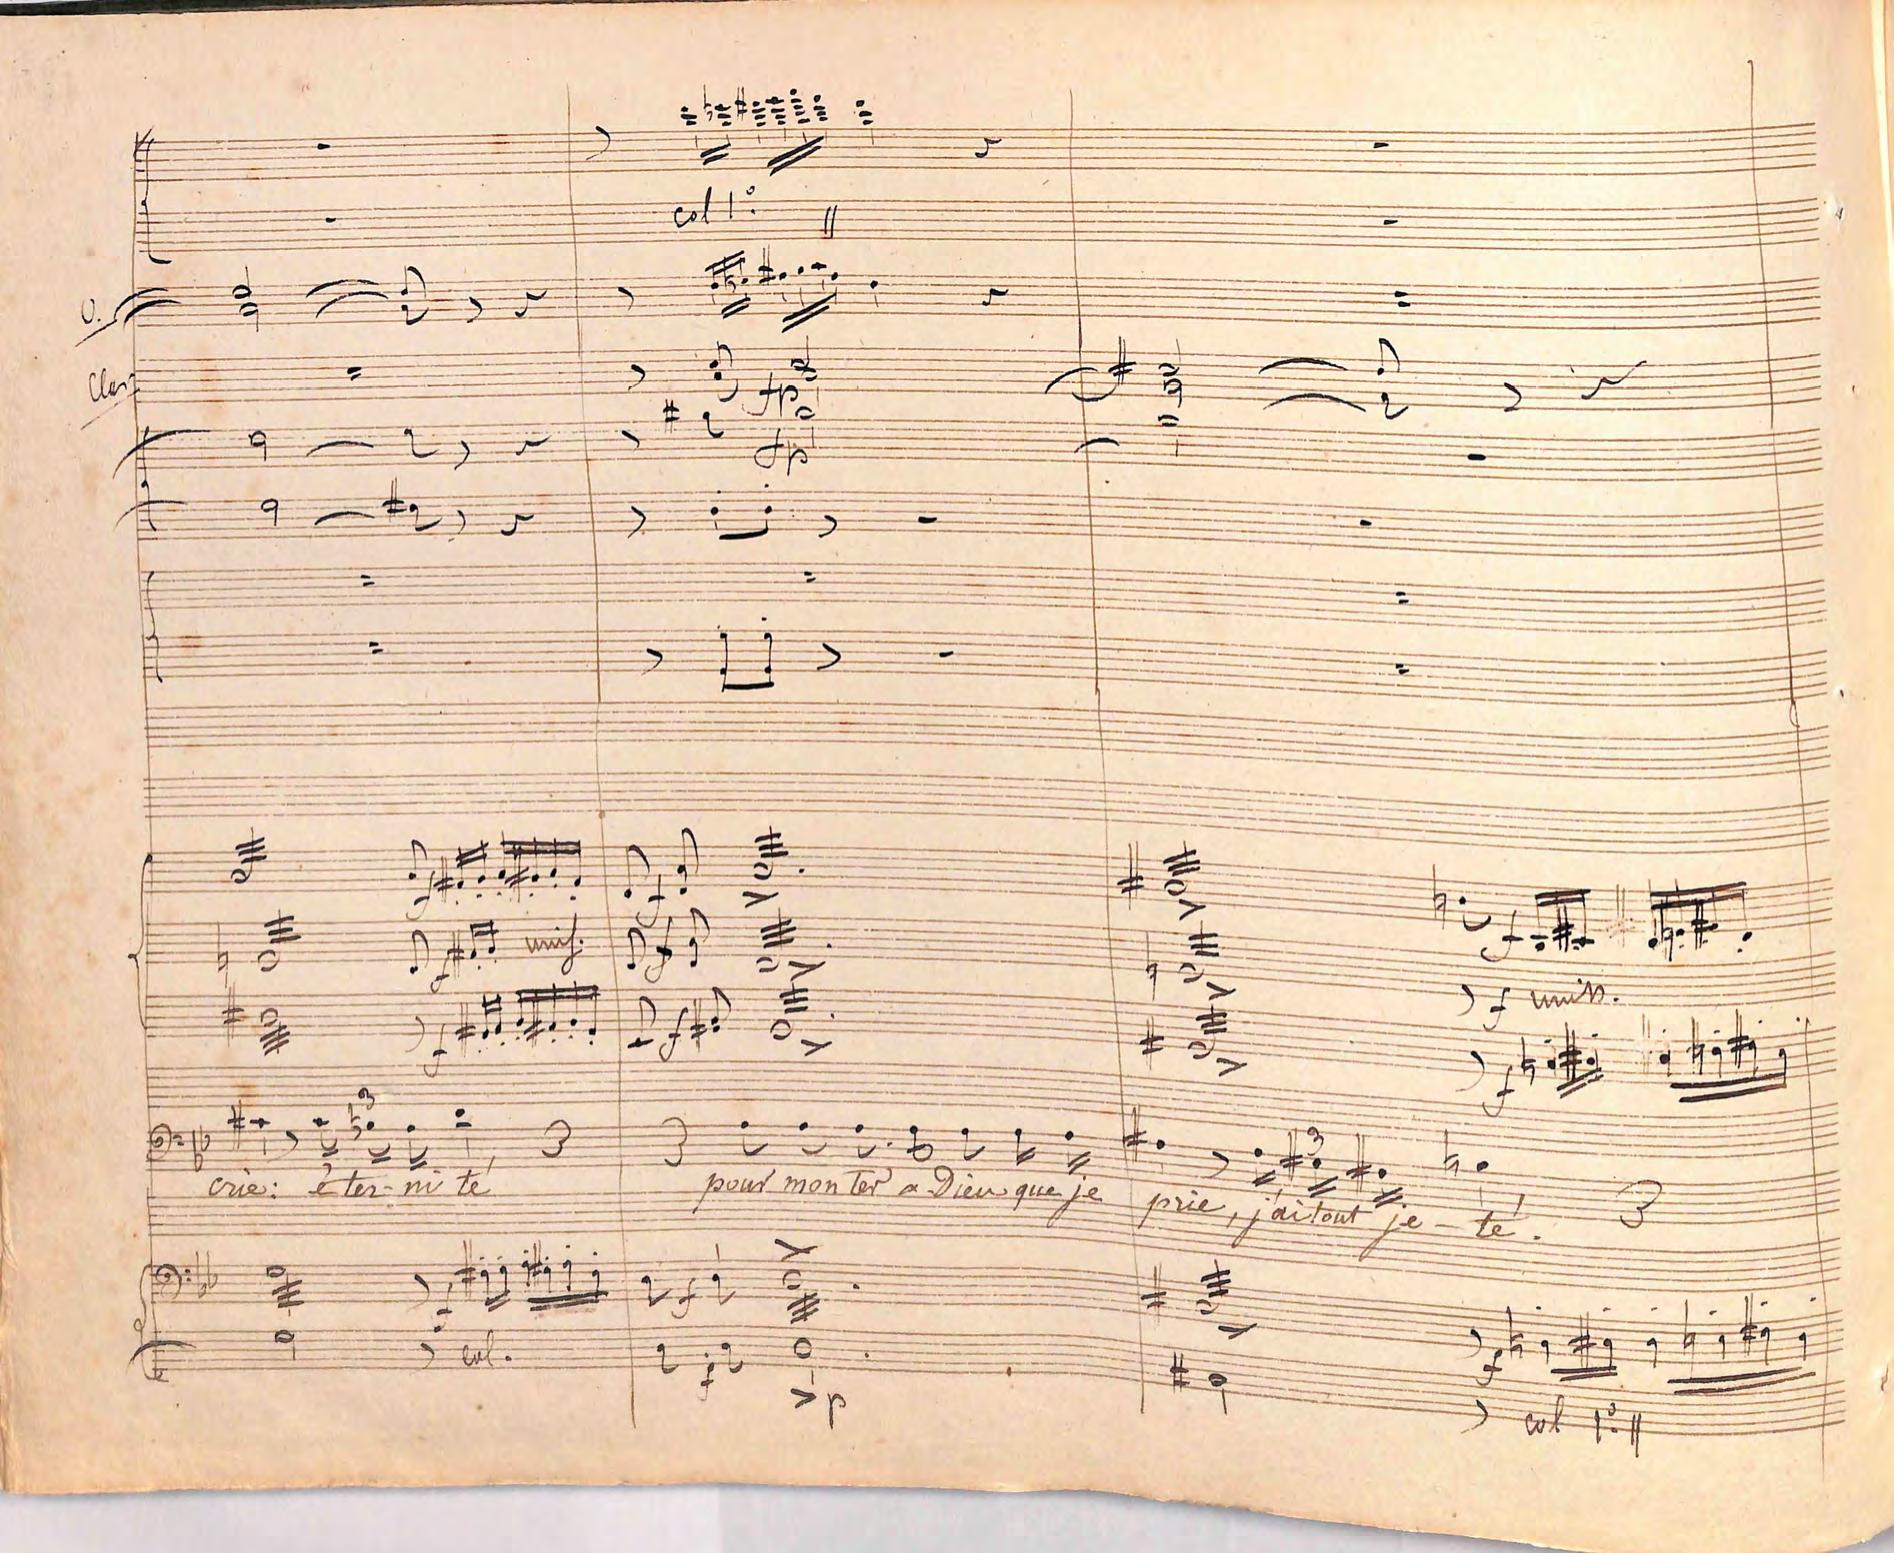 col 1º.
O.
Clar:
fp
fp
f
f
f
unis.
f
f
f unis.
f
f
f
3
3
crie: éternité, pour monter a Dieu que je prie, j'ai tout je-té.
f
f
f
col.
f
p
col 1º.